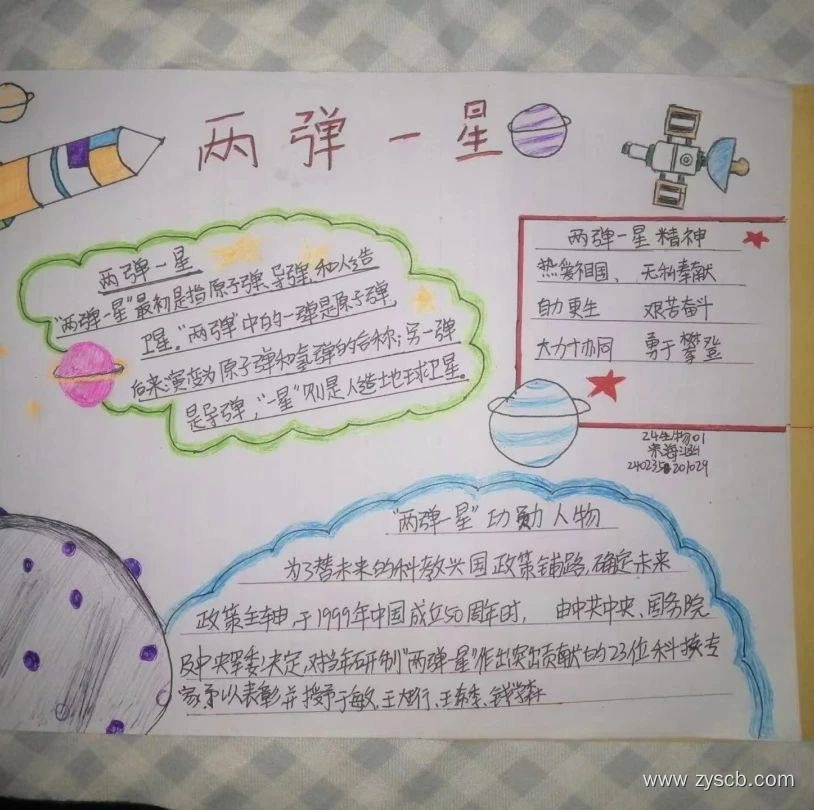 两弹一星
两弹一星
"两弹一星"最初是指原子弹、导弹和人造
卫星。"两弹"中的一弹是原子弹,
后来演变为原子弹和氢弹的合称;另一弹
是导弹,"一星"则是人造地球卫星。
两弹一星精神
热爱祖国、 无私奉献
自力更生 艰苦奋斗
大力协同 勇于攀登
24生物01
240235 201029
"两弹一星"功勋人物
为了替未来的科教兴国政策铺路,确定未来
政策主轴,于1999年中国成立50周年时, 由中共中央、国务院
及中央军委决定,对当年研制"两弹一星"作出突出贡献的23位科技专
家予以表彰并授予于敏、王大珩、王希季、钱学森
www.zyscb.com